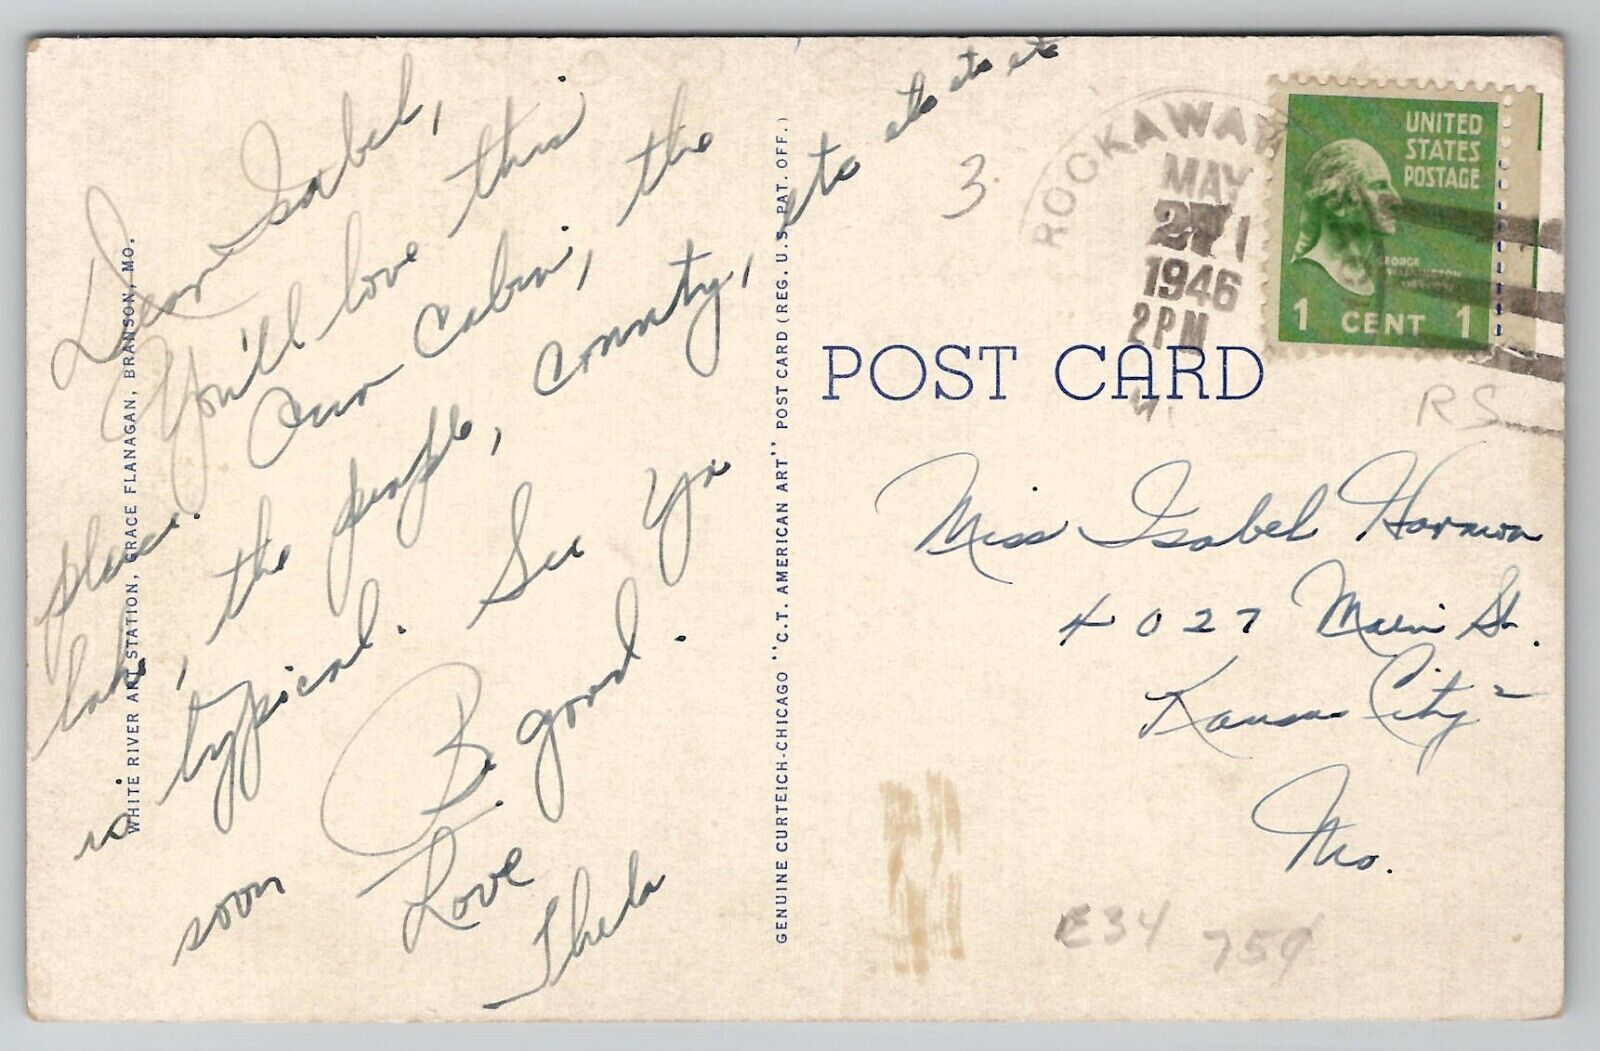 Dear Isabel,
You'll love this
place. Our cabin, the
lake, the people, the
country, etc etc etc etc
is typical. See Ya
soon B. good.
Love
Thela
WHITE RIVER ART STATION, GRACE FLANAGAN, BRANSON, MO.
GENUINE CURTEICH-CHICAGO "C.T. AMERICAN ART" POST CARD (REG. U.S. PAT. OFF.)
3
ROCKAWAY
MAY
1946
2 PM
UNITED
STATES
POSTAGE
GEORGE
WASHINGTON
1 CENT 1
POST CARD
RS
Miss Isabel
4027 Main St.
Kansas City 2
Mo.
E34 75¢